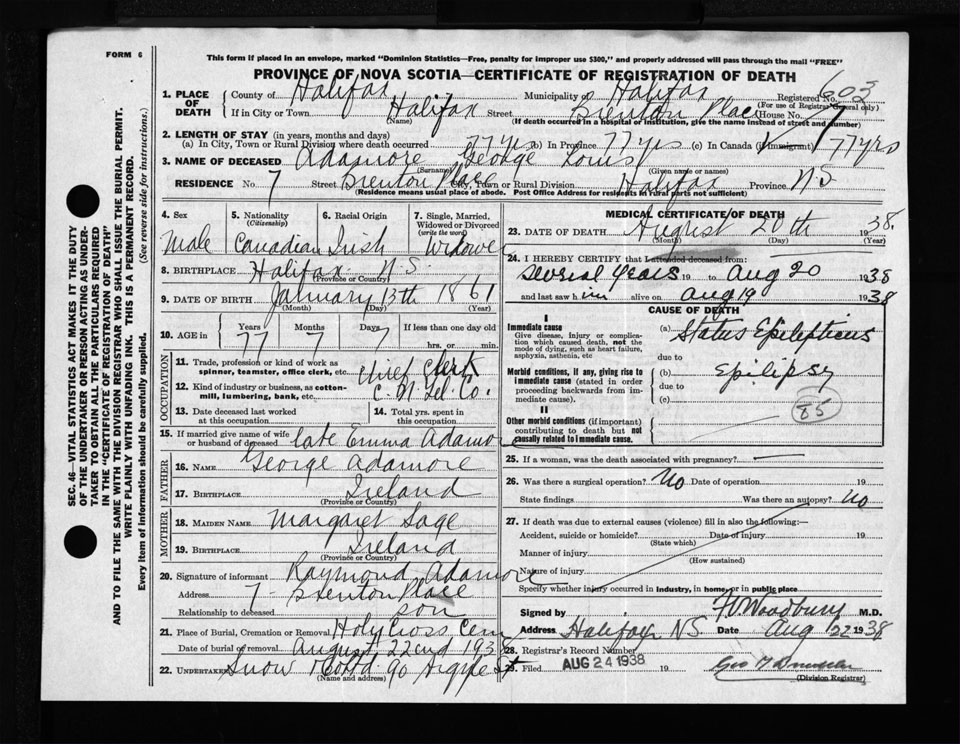 FORM 6
This form if placed in an envelope, marked "Dominion Statistics—Free, penalty for improper use $300," and properly addressed will pass through the mail "FREE"
PROVINCE OF NOVA SCOTIA—CERTIFICATE OF REGISTRATION OF DEATH
SEC. 46—VITAL STATISTICS ACT MAKES IT THE DUTY
OF THE UNDERTAKER OR PERSON ACTING AS UNDER-
TAKER TO OBTAIN ALL THE PARTICULARS REQUIRED
IN THE "CERTIFICATE OF REGISTRATION OF DEATH"
AND TO FILE THE SAME WITH THE DIVISION REGISTRAR WHO SHALL ISSUE THE BURIAL PERMIT.
WRITE PLAINLY WITH UNFADING INK. THIS IS A PERMANENT RECORD.
Every item of information should be carefully supplied. (See reverse side for instructions.)
1. PLACE OF DEATH County of Halifax Municipality of Halifax Registered No. 603
(For use of Registrar General only)
If in City or Town Halifax Street Brenton Place House No. 7
(Name) (If death occurred in a hospital or institution, give the name instead of street and number)
2. LENGTH OF STAY (in years, months and days)
(a) In City, Town or Rural Division where death occurred 77 yrs (b) In Province 77 yrs (c) In Canada (if immigrant) 77 yrs
3. NAME OF DECEASED Adamore George Louis
(Surname) (Given name or names)
RESIDENCE No. 7 Street Brenton Place City, Town or Rural Division Halifax Province N.S
(Residence means usual place of abode. Post Office Address for residents in rural parts not sufficient)
4. Sex Male
5. Nationality (Citizenship) Canadian
6. Racial Origin Irish
7. Single, Married, Widowed or Divorced (write the word) Widower
8. BIRTHPLACE Halifax N.S.
(Province or Country)
9. DATE OF BIRTH January 13th 1861
(Month) (Day) (Year)
10. AGE in Years 77 Months 7 Days 7 If less than one day
hrs. or min.
OCCUPATION
11. Trade, profession or kind of work as spinner, teamster, office clerk, etc. Chief Clerk
12. Kind of industry or business, as cotton-mill, lumbering, bank, etc. C. N Tel. Co.
13. Date deceased last worked at this occupation
14. Total yrs. spent in this occupation
15. If married give name of wife or husband of deceased late Emma Adamore
FATHER
16. NAME George Adamore
17. BIRTHPLACE Ireland
(Province or Country)
MOTHER
18. MAIDEN NAME Margaret Sage
19. BIRTHPLACE Ireland
(Province or Country)
20. Signature of informant Raymond Adamore
Address 7 - Brenton Place
Relationship to deceased son
21. Place of Burial, Cremation or Removal Holy Cross Cem
Date of burial or removal August 22nd 1938
22. UNDERTAKER Snow Co Ltd 90 Argyle St
(Name and address)
MEDICAL CERTIFICATE OF DEATH
23. DATE OF DEATH August 20th 1938.
(Month) (Day) (Year)
24. I HEREBY CERTIFY that I attended deceased from:
Several Years 19 to Aug 20 1938
and last saw him alive on Aug 19 1938
CAUSE OF DEATH
I
Immediate cause
Give disease, injury or complication which caused death, not the mode of dying, such as heart failure, asphyxia, asthenia, etc
(a) Status Epilepticus
due to
Morbid conditions, if any, giving rise to immediate cause (stated in order proceeding backwards from immediate cause).
(b) Epilipsy
due to
(c)
85
II
Other morbid conditions (if important) contributing to death but not causally related to immediate cause.
25. If a woman, was the death associated with pregnancy? —
26. Was there a surgical operation? No Date of operation 19
State findings Was there an autopsy? No
27. If death was due to external causes (violence) fill in also the following:—
Accident, suicide or homicide? Date of injury 19
(State which)
Manner of injury
(How sustained)
Nature of injury
Specify whether injury occurred in industry, in home, or in public place
Signed by Woodbury M.D.
Address Halifax N.S. Date Aug 22 1938
28. Registrar's Record Number
29. Filed AUG 24 1938
(Division Registrar)